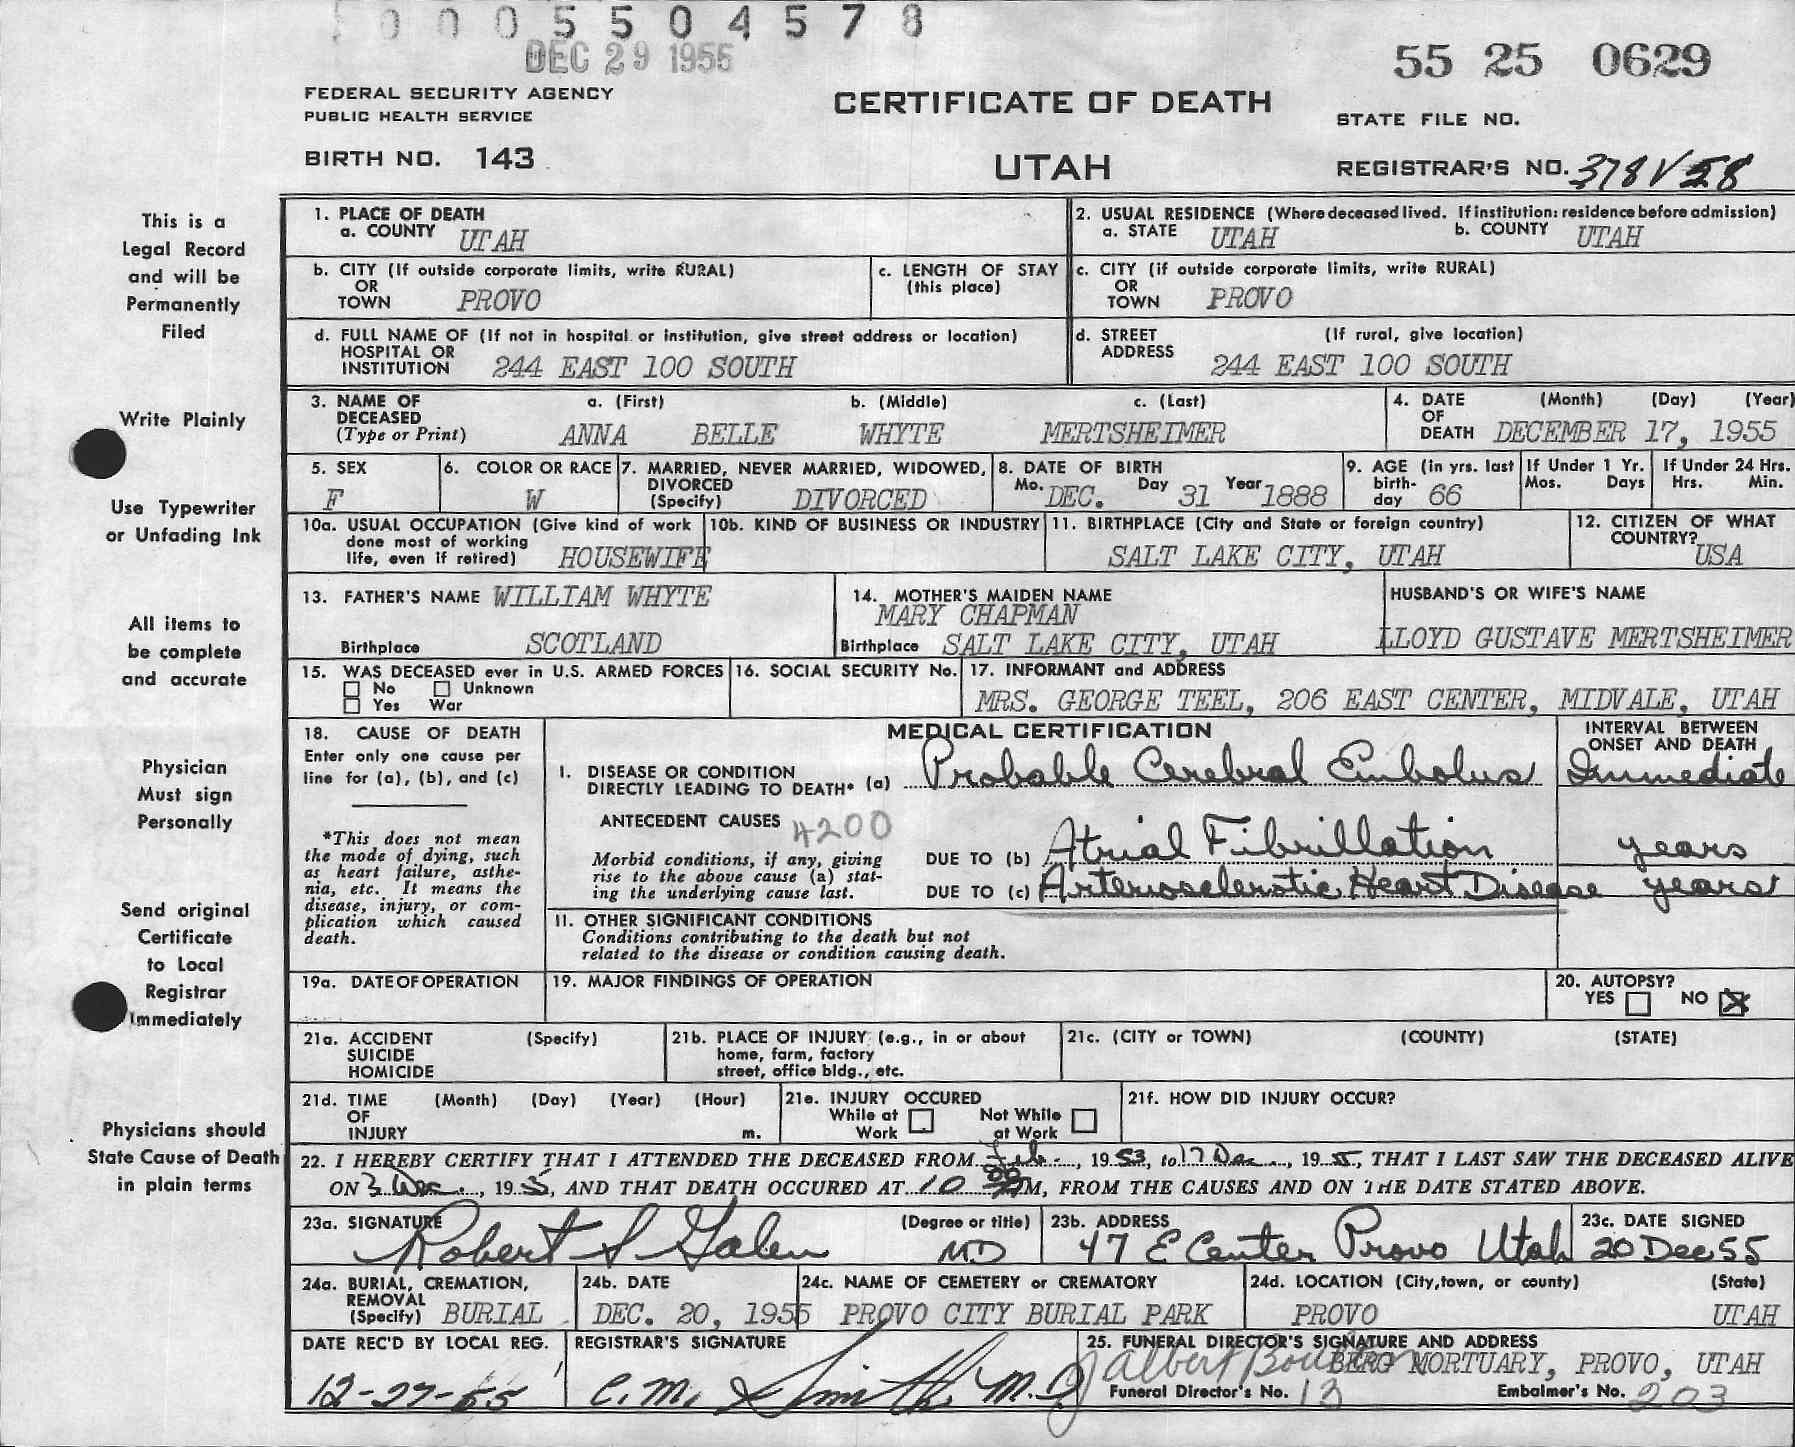 0 0 0 5 5 0 4 5 7 8
DEC 29 1955
55 25 0629
FEDERAL SECURITY AGENCY
PUBLIC HEALTH SERVICE
CERTIFICATE OF DEATH
STATE FILE NO.
BIRTH NO. 143
UTAH
REGISTRAR'S NO. 378 V 58
This is a
Legal Record
and will be
Permanently
Filed
Write Plainly
Use Typewriter
or Unfading Ink
All items to
be complete
and accurate
Physician
Must sign
Personally
Send original
Certificate
to Local
Registrar
Immediately
Physicians should
State Cause of Death
in plain terms
1. PLACE OF DEATH
a. COUNTY UTAH
2. USUAL RESIDENCE (Where deceased lived. If institution: residence before admission)
a. STATE UTAH b. COUNTY UTAH
b. CITY (If outside corporate limits, write RURAL)
OR
TOWN PROVO
c. LENGTH OF STAY
(this place)
c. CITY (if outside corporate limits, write RURAL)
OR
TOWN PROVO
d. FULL NAME OF (If not in hospital or institution, give street address or location)
HOSPITAL OR
INSTITUTION 244 EAST 100 SOUTH
d. STREET (If rural, give location)
ADDRESS 244 EAST 100 SOUTH
3. NAME OF a. (First) b. (Middle) c. (Last)
DECEASED
(Type or Print) ANNA BELLE WHYTE MERTSHEIMER
4. DATE (Month) (Day) (Year)
OF
DEATH DECEMBER 17, 1955
5. SEX
F
6. COLOR OR RACE
W
7. MARRIED, NEVER MARRIED, WIDOWED,
DIVORCED
(Specify) DIVORCED
8. DATE OF BIRTH
Mo. DEC. Day 31 Year 1888
9. AGE (in yrs. last
birth-
day 66
If Under 1 Yr.
Mos. Days
If Under 24 Hrs.
Hrs. Min.
10a. USUAL OCCUPATION (Give kind of work
done most of working
life, even if retired) HOUSEWIFE
10b. KIND OF BUSINESS OR INDUSTRY
11. BIRTHPLACE (City and State or foreign country)
SALT LAKE CITY, UTAH
12. CITIZEN OF WHAT
COUNTRY?
USA
13. FATHER'S NAME WILLIAM WHYTE
Birthplace SCOTLAND
14. MOTHER'S MAIDEN NAME
MARY CHAPMAN
Birthplace SALT LAKE CITY, UTAH
HUSBAND'S OR WIFE'S NAME
LLOYD GUSTAVE MERTSHEIMER
15. WAS DECEASED ever in U.S. ARMED FORCES
No Unknown
Yes War
16. SOCIAL SECURITY No.
17. INFORMANT and ADDRESS
MRS. GEORGE TEEL, 206 EAST CENTER, MIDVALE, UTAH
18. CAUSE OF DEATH
Enter only one cause per
line for (a), (b), and (c)
*This does not mean
the mode of dying, such
as heart failure, asthe-
nia, etc. It means the
disease, injury, or com-
plication which caused
death.
MEDICAL CERTIFICATION
INTERVAL BETWEEN
ONSET AND DEATH
I. DISEASE OR CONDITION
DIRECTLY LEADING TO DEATH* (a) Probable Cerebral Embolus Immediate
ANTECEDENT CAUSES 4200
Morbid conditions, if any, giving
rise to the above cause (a) stat-
ing the underlying cause last.
DUE TO (b) Atrial Fibrillation years
DUE TO (c) Arteriosclerotic Heart Disease years
II. OTHER SIGNIFICANT CONDITIONS
Conditions contributing to the death but not
related to the disease or condition causing death.
19a. DATE OF OPERATION
19. MAJOR FINDINGS OF OPERATION
20. AUTOPSY?
YES NO X
21a. ACCIDENT (Specify)
SUICIDE
HOMICIDE
21b. PLACE OF INJURY (e.g., in or about
home, farm, factory
street, office bldg., etc.
21c. (CITY or TOWN) (COUNTY) (STATE)
21d. TIME (Month) (Day) (Year) (Hour)
OF
INJURY m.
21e. INJURY OCCURED
While at Not While
Work at Work
21f. HOW DID INJURY OCCUR?
22. I HEREBY CERTIFY THAT I ATTENDED THE DECEASED FROM Feb., 19 53, to 17 Dec., 19 55, THAT I LAST SAW THE DECEASED ALIVE
ON 3 Dec., 19 55, AND THAT DEATH OCCURED AT 10 00 M, FROM THE CAUSES AND ON THE DATE STATED ABOVE.
23a. SIGNATURE (Degree or title)
Robert S Galen MD
23b. ADDRESS
47 E Center Provo Utah
23c. DATE SIGNED
20 Dec 55
24a. BURIAL, CREMATION,
REMOVAL
(Specify) BURIAL
24b. DATE
DEC. 20, 1955
24c. NAME OF CEMETERY or CREMATORY
PROVO CITY BURIAL PARK
24d. LOCATION (City, town, or county) (State)
PROVO UTAH
DATE REC'D BY LOCAL REG.
12-27-55
REGISTRAR'S SIGNATURE
C. M. Smith M.D.
25. FUNERAL DIRECTOR'S SIGNATURE AND ADDRESS
Albert
BERG MORTUARY, PROVO, UTAH
Funeral Director's No. 13 Embalmer's No. 203